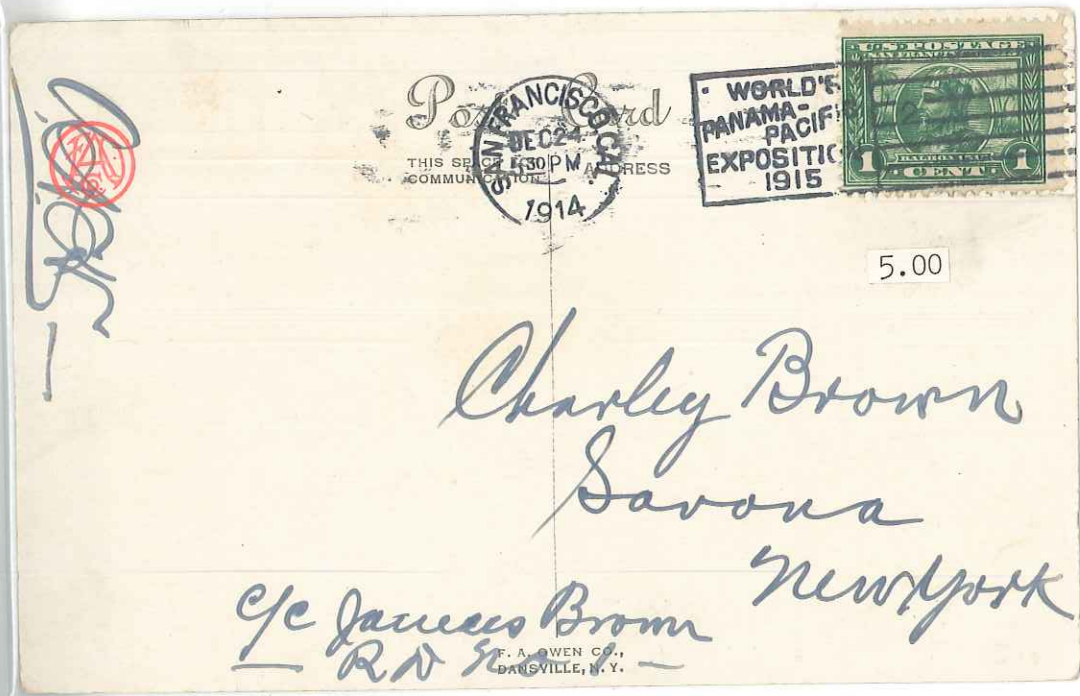 Post Card
THIS SPACE
COMMUNICATION
ADDRESS
SAN FRANCISCO, CAL.
DEC 24
30 PM
1914
WORLD'S
PANAMA-
PACIF
EXPOSITIO
1915
U.S. POSTAGE
SAN FRANCISCO
BALBOA 1513
1 CENT 1
5.00
Charley Brown
Savona
New York
c/c James Brown
R D No 1
F. A. OWEN CO.,
DANSVILLE, N. Y.